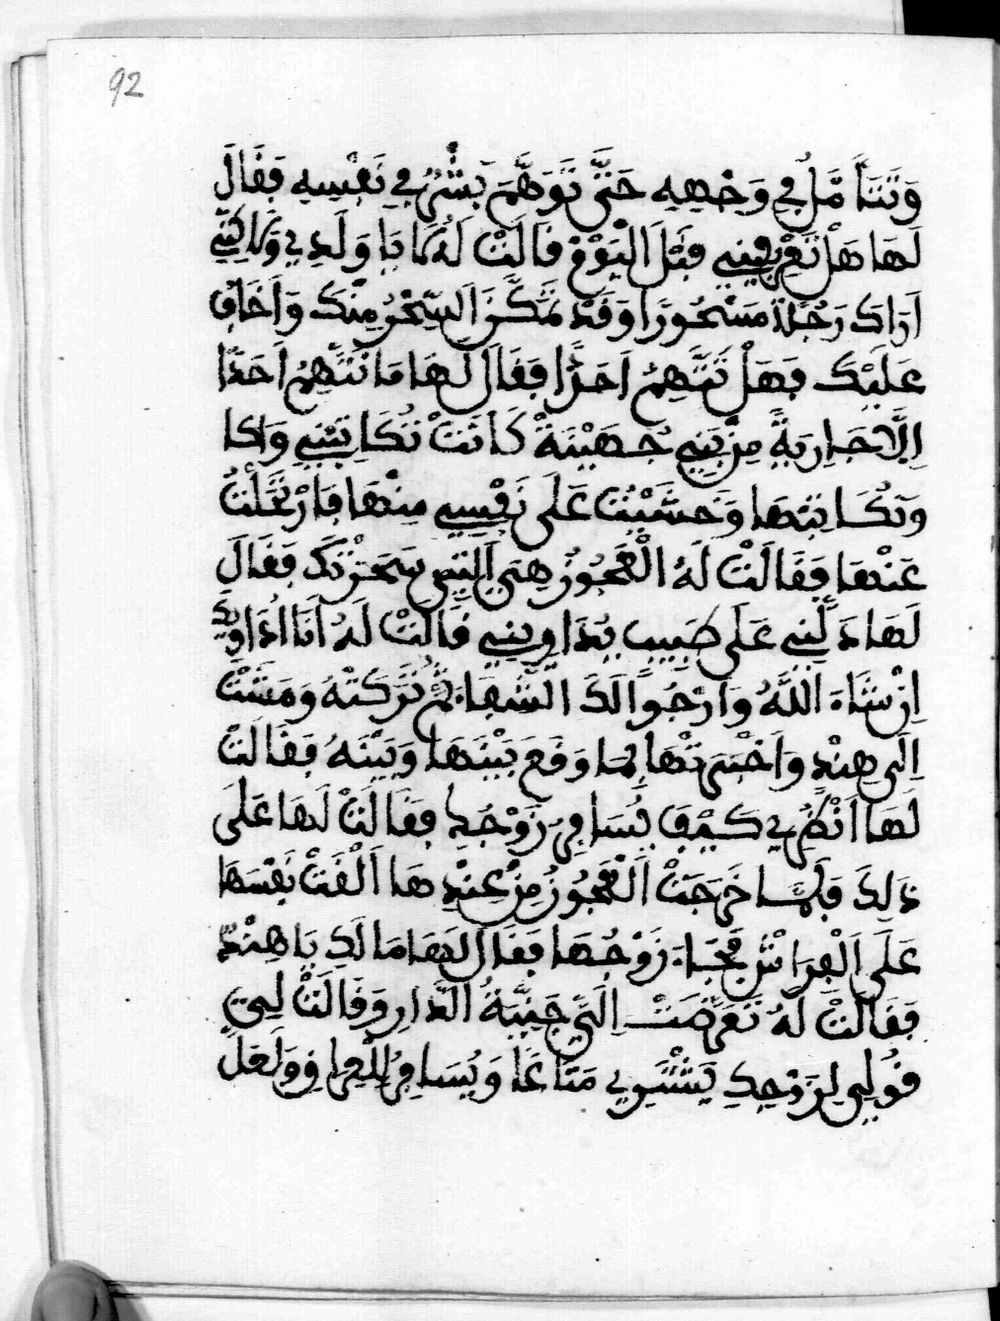 92
وَتَتَأَمَّلُ فِي وَجْهِهِ حَتَّى تَوَهَّمَ بِشْرُ فِي نَفْسِهِ فَقَالَ
لَهَا هَلْ تَعْرِفِينِي قَبْلَ الْيَوْمِ قَالَتْ لَهُ لَا يَا وَلَدِي وَلَاكِنِّي
أَرَاكَ رَجُلًا مَسْحُورًا وَقَدْ تَمَكَّنَ السِّحْرُ مِنْكَ وَأَخَافُ
عَلَيْكَ فَهَلْ تَتَّهِمُ أَحَدًا فَقَالَ لَهَا مَا نَتَّهِمُ أَحَدًا
إِلَّا جَارِيَةً مِنْ بَنِي جُهَيْنَةَ كَانَتْ تُكَاتِبُنِي وَأَنَا
وَنُكَاتِبُهَا وَخَشَيْتُ عَلَى نَفْسِي مِنْهَا فَارْتَحَلْتُ
عَنْهَا فَقَالَتْ لَهُ الْعَجُوزُ هِيَ الَّتِي سَحَرَتْكَ فَقَالَ
لَهَا دَلِّنِي عَلَى طَبِيبٍ يُدَاوِينِي قَالَتْ لَهُ أَنَا أُدَاوِيكَ
إِنْ شَاءَ اللَّهُ وَأَرْجُوا لَكَ الشِّفَاءَ ثُمَّ تَرَكَتْهُ وَمَشَتْ
إِلَى هِنْدٍ وَأَخْبَرَتْهَا بِمَا وَقَعَ بَيْنَهَا وَبَيْنَهُ فَقَالَتْ
لَهَا انْظُرِي كَيْفَ يُسَافِرُ زَوْجُكِ فَقَالَتْ لَهَا عَلَيَّ
ذَلِكَ فَلَمَّا خَرَجَتْ الْعَجُوزُ مِنْ عِنْدِهَا أَلْقَتْ نَفْسَهَا
عَلَى الْفِرَاشِ فَجَاءَ زَوْجُهَا فَقَالَ لَهَا مَا لَكِ يَا هِنْدُ
فَقَالَتْ لَهُ تَعَرَّضَتْ إِلَيَّ جِنِّيَّةُ الدَّارِ وَقَالَتْ لِي
قُولِي لِزَوْجِكِ يَشْتَرِي مَتَاعًا وَيُسَافِرُ لِلْعِرَاقِ وَلَعَلَّ